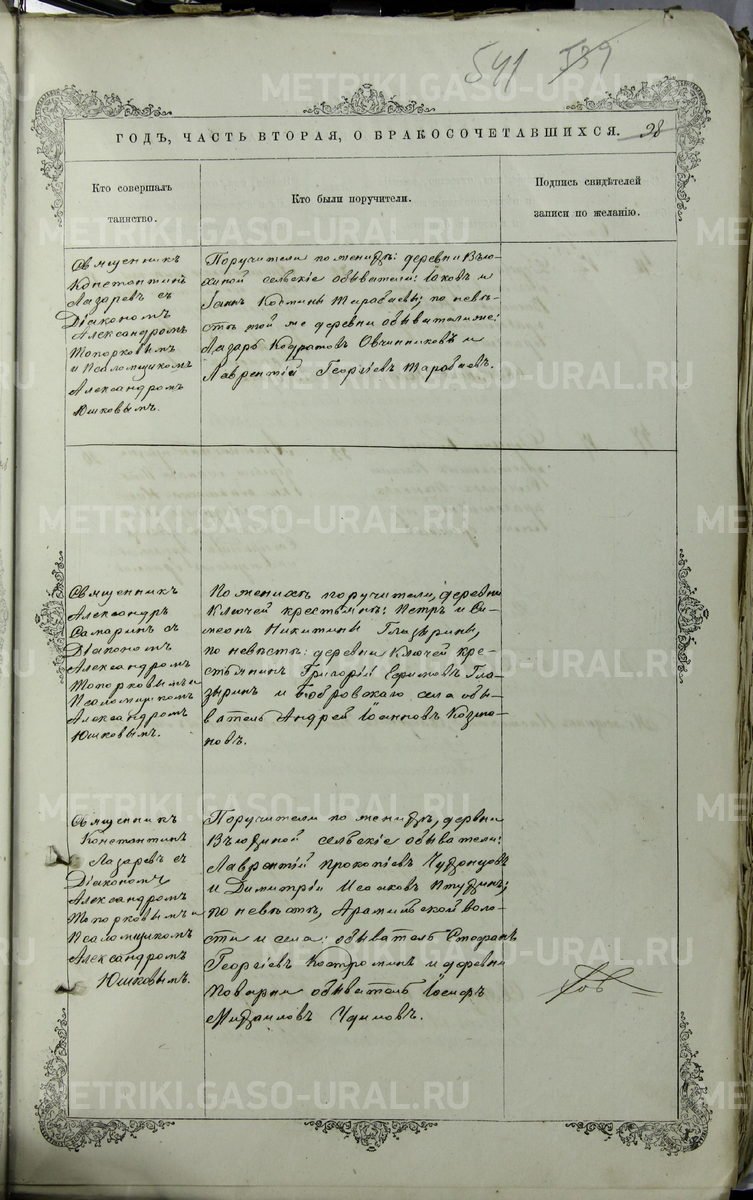 541 539
ГОДЪ, ЧАСТЬ ВТОРАЯ, О БРАКОСОЧЕТАВШИХСЯ. 98
Кто совершалъ
таинство.
Кто были поручители.
Подпись свидѣтелей
записи по желанію.
Священникъ
Константинъ
Лазаревъ съ
Діакономъ
Александромъ
Топорковымъ
и Псаломщикомъ
Александромъ
Юшковымъ.
Поручители по женихѣ: деревни Вью-
хиной сельскіе обыватели: Іаковъ и
Іаннъ Козмины Тарабаевы; по невѣ-
стѣ той же деревни обыватели же:
Лазарь Кодратовъ Овчинниковъ и
Лаврентій Георгіевъ Тарабаевъ.
Священникъ
Александръ
Самаринъ съ
Діакономъ
Александромъ
Топорковымъ и
Псаломщикомъ
Александромъ
Юшковымъ.
По женихѣ поручители, деревни
Ключей крестьяне: Петръ и Си-
меонъ Никитины Глазырины,
по невѣстѣ: деревни Ключей кре-
стьянинъ Григорій Ефимовъ Гла-
зыринъ и Бобровскаго села обы-
ватель Андрей Іоанновъ Козло-
новъ.
Священникъ
Константинъ
Лазаревъ съ
Діакономъ
Александромъ
Топорковымъ и
Псаломщикомъ
Александромъ
Юшковымъ.
Поручители по женихѣ, деревни
Вьюхиной сельскіе обыватели:
Лаврентій Прокопіевъ
и Димитрій Исааковъ Птухинъ;
по невѣстѣ, Арамильской воло-
сти и села: обыватель Стефанъ
Георгіевъ Костроминъ и деревни
Поварни обыватель Іосифъ
Михаиловъ Чуиловъ.
METRIKI.GASO-URAL.RU